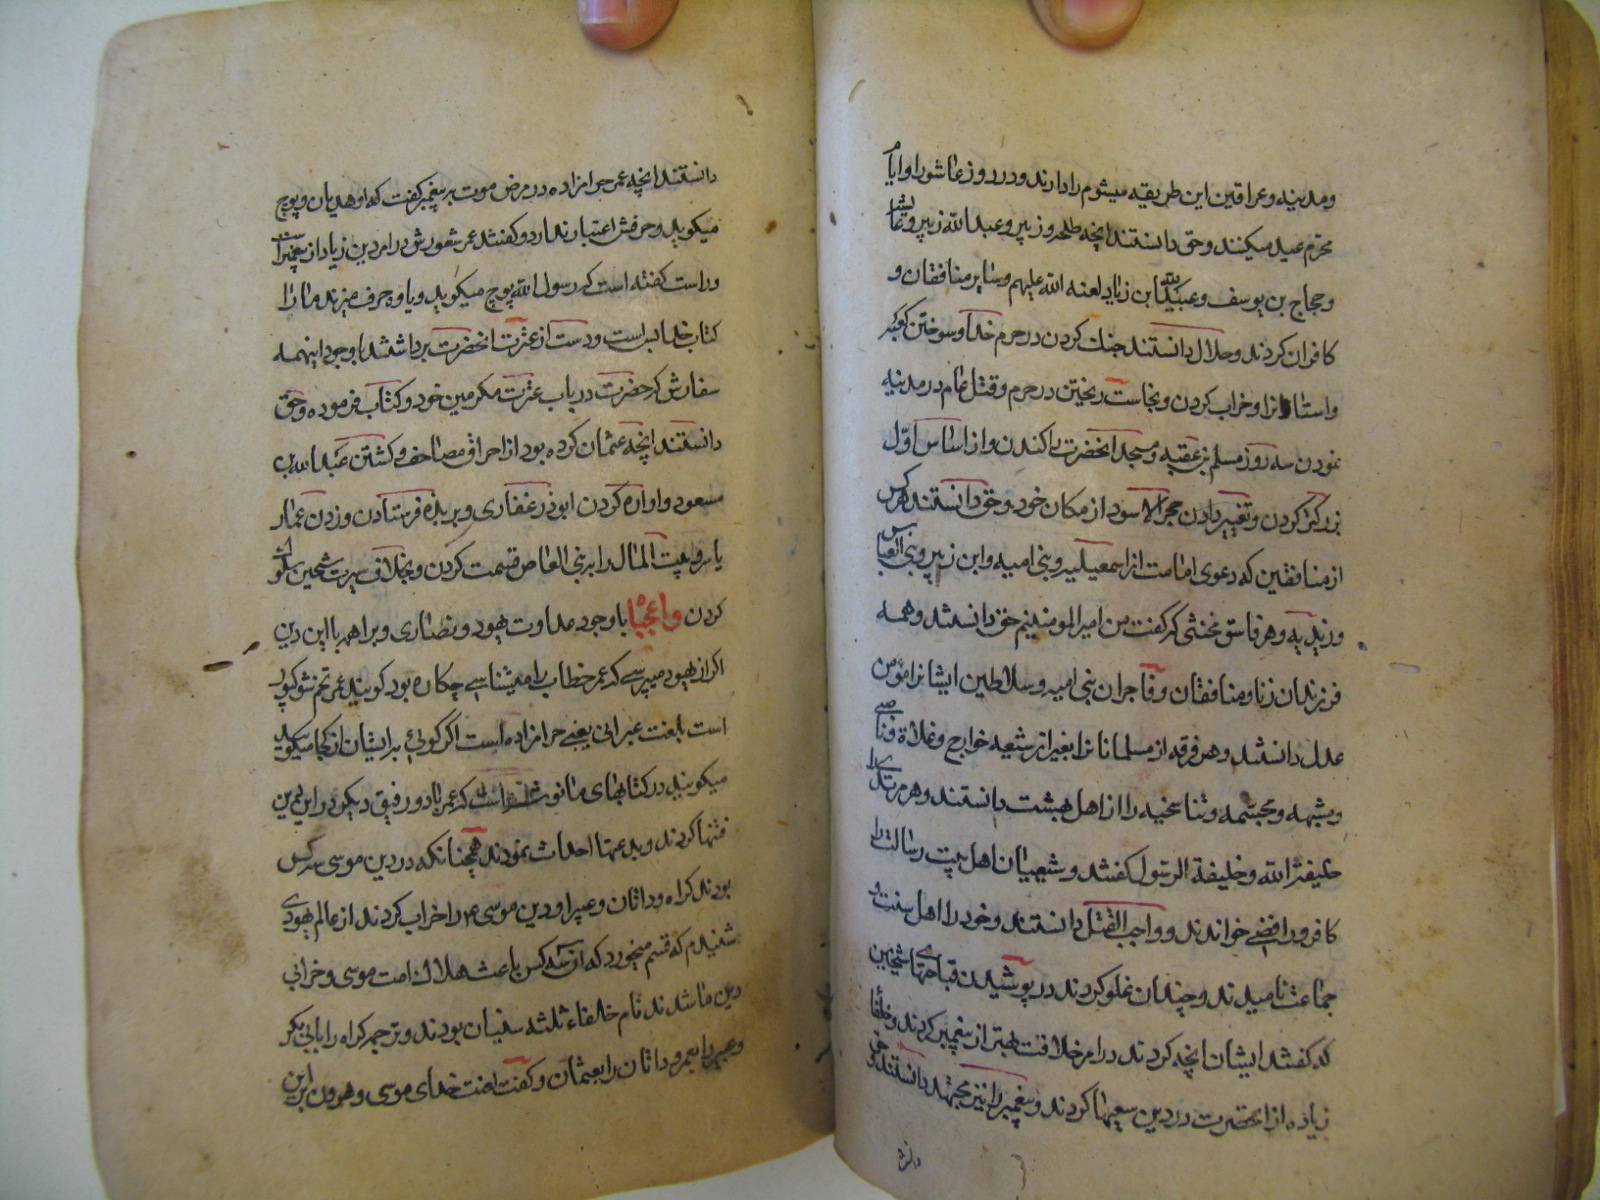 ومدینه وعراقین این طریقه میشوم را دارند ودر روز عاشورا وایام
محرم عید میکنند وحق دانستند انچه طلحه وزبیر وعبد الله زبیر وعایشه
وحجاج بن یوسف وعبید الله ابن زیاد لعنه الله علیهم وسایر منافقان و
کافران کردند وحلال دانستند جنک کردن در حرم خدا وسوختن کعبه
واستار انرا وخراب کردن ونجاست ریختن در حرم وقتل عام در مدینه
نمودن سه روز مسلم بن عقبه ومسجد انحضرت را کندن واز اساس اول
بزرکتر کردن وتغییر دادن حجر الاسود از مکان خود وحق دانستند هرکس
از منافقین که دعوی امامت از اسمعیلیه وبنی امیه وابن زبیر وبنی العباس
وزیدیه وهر فاسق مخنثی که کفت من امیر المومنینم حق دانستند وهمه
فرزندان زنا ومنافقان وفاجران بنی امیه وسلاطین ایشانرا مؤمن
عدل دانستند وهر فرقه از مسلمانانرا بغیر از شیعه خوارج وغلاة وناصبی
ومشبهه ومجسمه وتناسخیه را از اهل بهشت دانستند وهر مرتدی را
خلیفة الله وخلیفة الرسول کفتند وشیعیان اهل بیت رسالت را
کافر ورافضی خواندند وواجب القتل دانستند وخود را اهل سنت و
جماعت نامیدند وچندان غلو کردند در پوشیدن قباحتهای شیخین
که کفتند ایشان انچه کردند در امر خلافت بهتر از پیغمبر کردند وخلفا
زیاده از انحضرت در دین سعیها کردند وپیغمبر را نیز مجتهد دانستند وحق
دانستند انچه عمر حرامزاده در مرض موت بر پیغمبر کفت که او هذیان وپوچ
میکوید وحرفش اعتبار ندارد وکفتند عمر شعورش در امر دین زیاد از پیغمبر است
وراست کفته است که رسول الله پوچ میکوید ویاوه حرف میزند ما را
کتاب خدا بس است ودست از عترت انحضرت برداشتند با وجود اینهمه
سفارش که حضرت در باب عترت مکرمین خود وکتاب فرموده وحق
دانستند انچه عثمان کرده بود از احراق مصاحف وکشتن عبد الله بن
مسعود واواره کردن ابوذر غفاری وبربذه فرستادن وزدن عمار
یاسر وبیت المال را بر بنی العاص قسمت کردن وبخلاف سیرت شیخین سلوک
کردن واعجبا با وجود عداوت یهود ونصاری وبراهمه با این دین
اکر از یهود میپرسی که عمر خطاب را میشناسی چکاره بود کویند عمر تخم شوکپور
است بلغت عبرانی یعنی حرامزاده است اکر کوئی بر ایشان از کجا میکوید
میکویند در کتابهای ما نوشته است که عمر با دو رفیق دیکر در این دین
فتنها کردند وبدعتها احداث نمودند همچنانکه در دین موسی سه کس
بودند کراه وداثان وعبیر او دین موسی ع را خراب کردند از عالم یهودی
شنیدم که قسم میخورد که ان سه کس باعث هلاک امت موسی وخرابی
دین ما شدند نام خلفاء ثلثه سنیان بودند وترجمه کراه را بابی بکر
وعبیر را بعمر وداثان را بعثمان وکفت لعنت خدای موسی وهرون بر این
دانـ